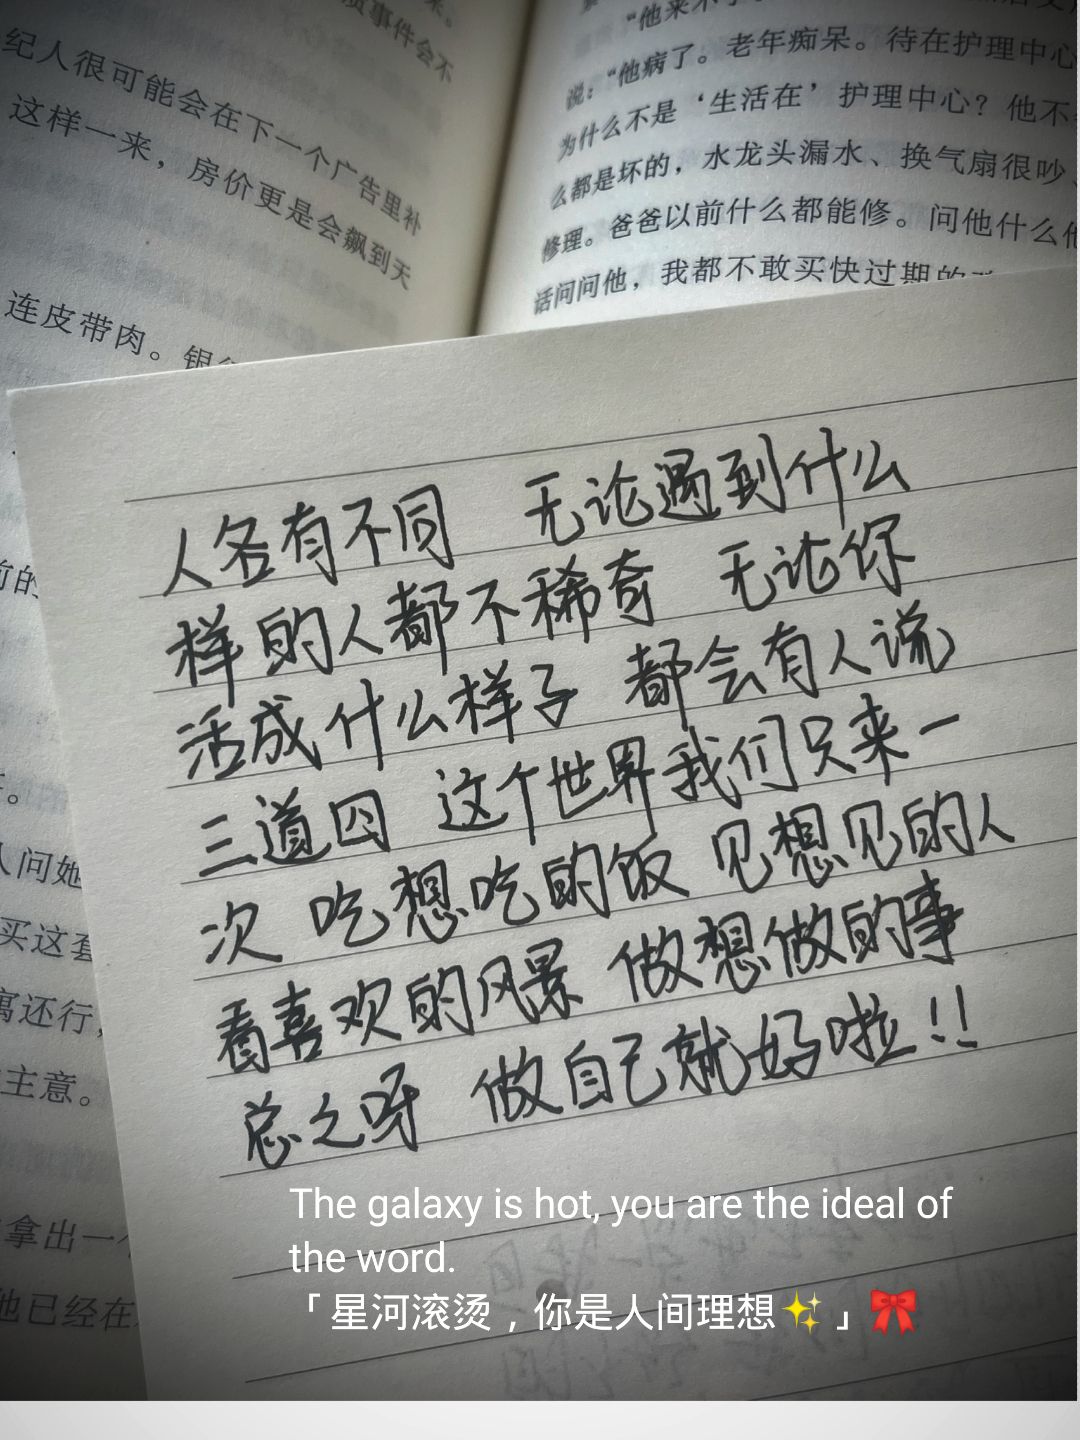 质事件会不
纪人很可能会在下一个广告里补
这样一来，房价更是会飙到天
连皮带肉。银
说：“他病了。老年痴呆。待在护理中心
为什么不是‘生活在’护理中心？他不
么都是坏的，水龙头漏水、换气扇很吵、
修理。爸爸以前什么都能修。问他什么他
话问问他，我都不敢买快过期的
前的
人问她
买这套
寓还行，
主意。
拿出一个
他已经在
人各有不同 无论遇到什么
样的人都不稀奇 无论你
活成什么样子 都会有人说
三道四 这个世界我们只来一
次 吃想吃的饭 见想见的人
看喜欢的风景 做想做的事
总之呀 做自己就好啦！！
The galaxy is hot, you are the ideal of
the word.
「星河滚烫，你是人间理想✨」🎀